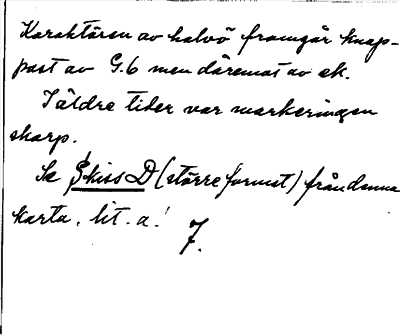 Karaktären av halvö framgår knap-
past av G.6 men däremot av ek.
I äldre tider var markeringen
skarp.
Se Skiss D (större format) från denna
karta, lit. a.!
7.